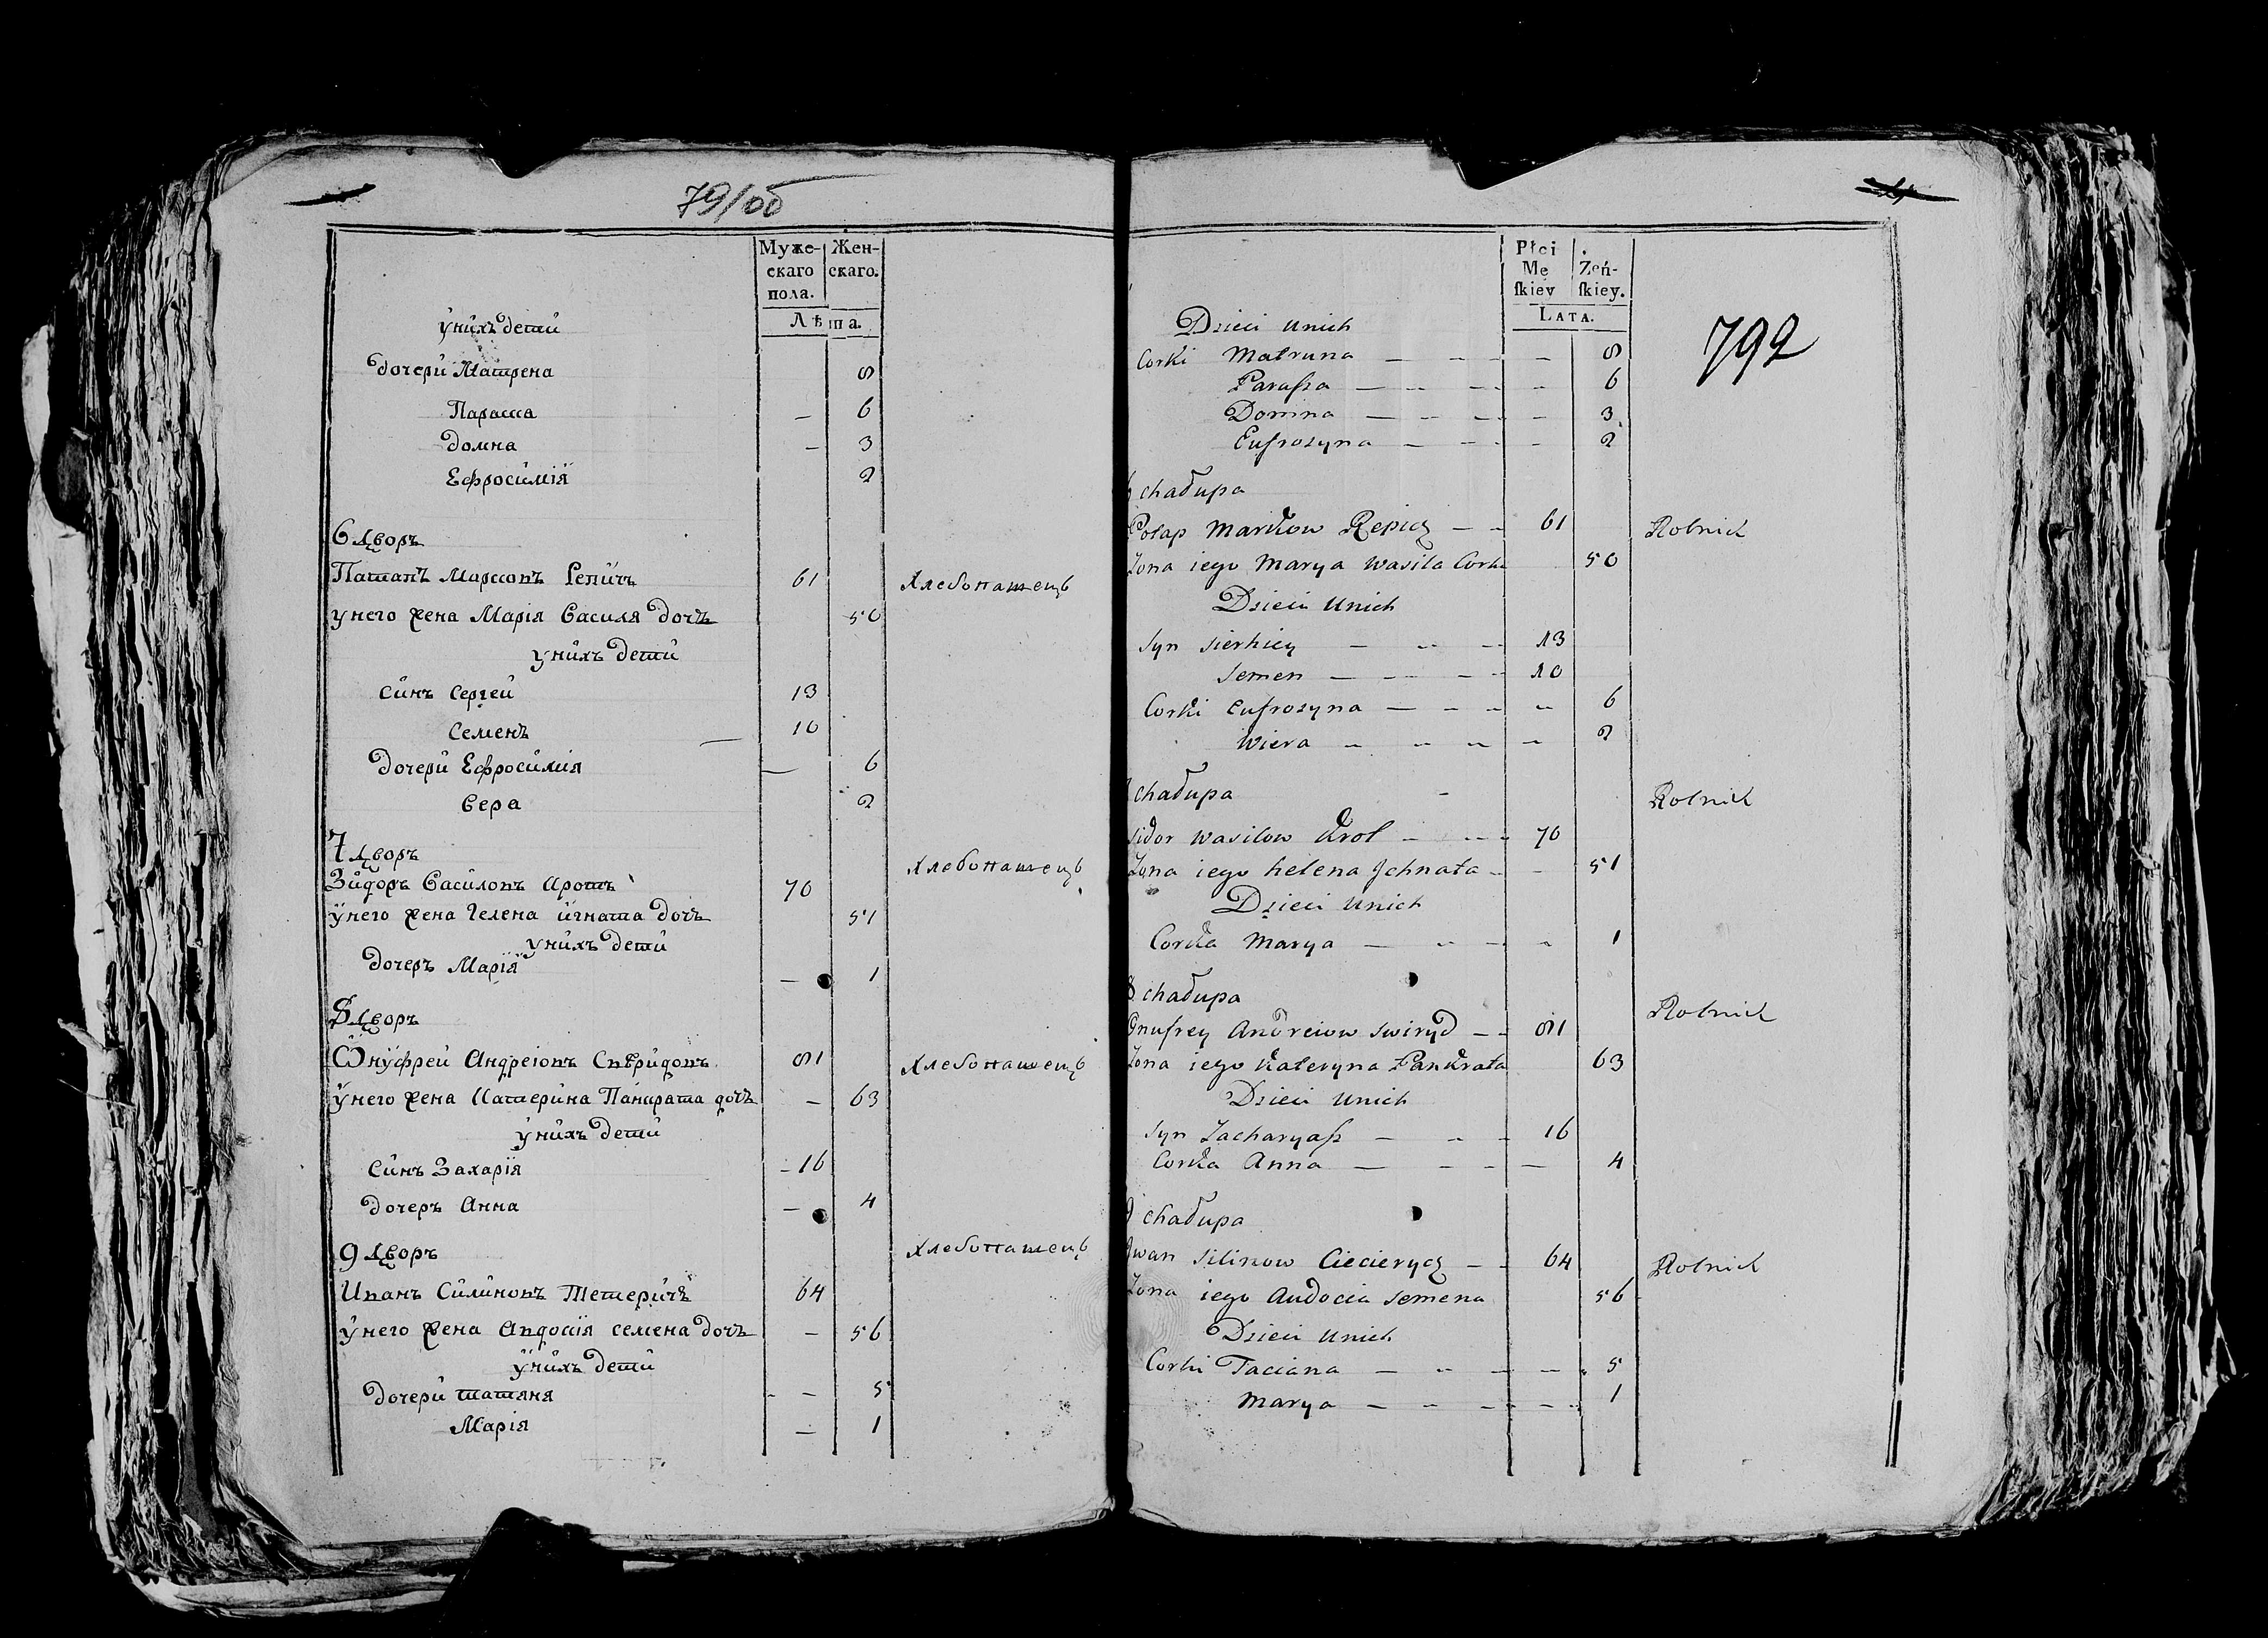 79/об
Муже-
скаго
пола.
Жен-
скаго.
Лѣта.
у нихъ дети
дочери Матрена 8
Параска — 6
домна — 3
Ефросимія 2
6 дворъ
Патапъ Марковъ Репичъ 61 Хлебопашецъ
у него жена Марія Василя дочъ 50
у нихъ дети
синъ Сергей 13
Семенъ — 10
дочери Ефросимія — 6
Вера 2
7 дворъ
Зидоръ Василовъ Кроть 70 Хлебопашецъ
у него жена Гелена Игната дочъ 51
у нихъ дети
дочеръ Марія — 1
8 дворъ
Онуфрей Андреіовъ Свѣридовъ 81 Хлебопашецъ
у него жена Катерина Панкрата дочъ — 63
у нихъ дети
Синъ Захарія — 16
дочеръ Анна — 4
9 дворъ Хлебопашецъ
Иванъ Силиновъ Тетеричъ 64
у него жена Авдосія семена дочъ — 56
у нихъ дети
дочери татяна - — 5
Марія — 1
Płci
Mę
ſkiey
Zeń-
ſkiey.
LATA.
792
Dzieci unich
Corki Matruna — 8
Paraſza — 6
Domna — 3
Eufrozyna — 2
6 chałupa
Potap Markow Repicz — 61 Rolnik
Zona iego Marya Wasila Corka 50
Dzieci unich
Syn Sierhiey — 13
Semen — 10
Corki Eufrozyna — 6
Wiera — 2
chałupa Rolnik
Sidor Wasilow Krol — 70
Zona iego helena Jchnata — 51
Dzieci unich
Corka Marya — 1
8 chałupa Rolnik
Onufrey Andreiow Swiryd — 81
Zona iego Kateryna Pankrata 63
Dzieci unich
Syn Zacharyaſz — 16
Corka Anna — 4
9 chałupa
Jwan Silinow Ciecierycz — 64 Rolnik
Zona iego Audocia Semena 56
Dzieci unich
Corki Taciana — 5
Marya — 1